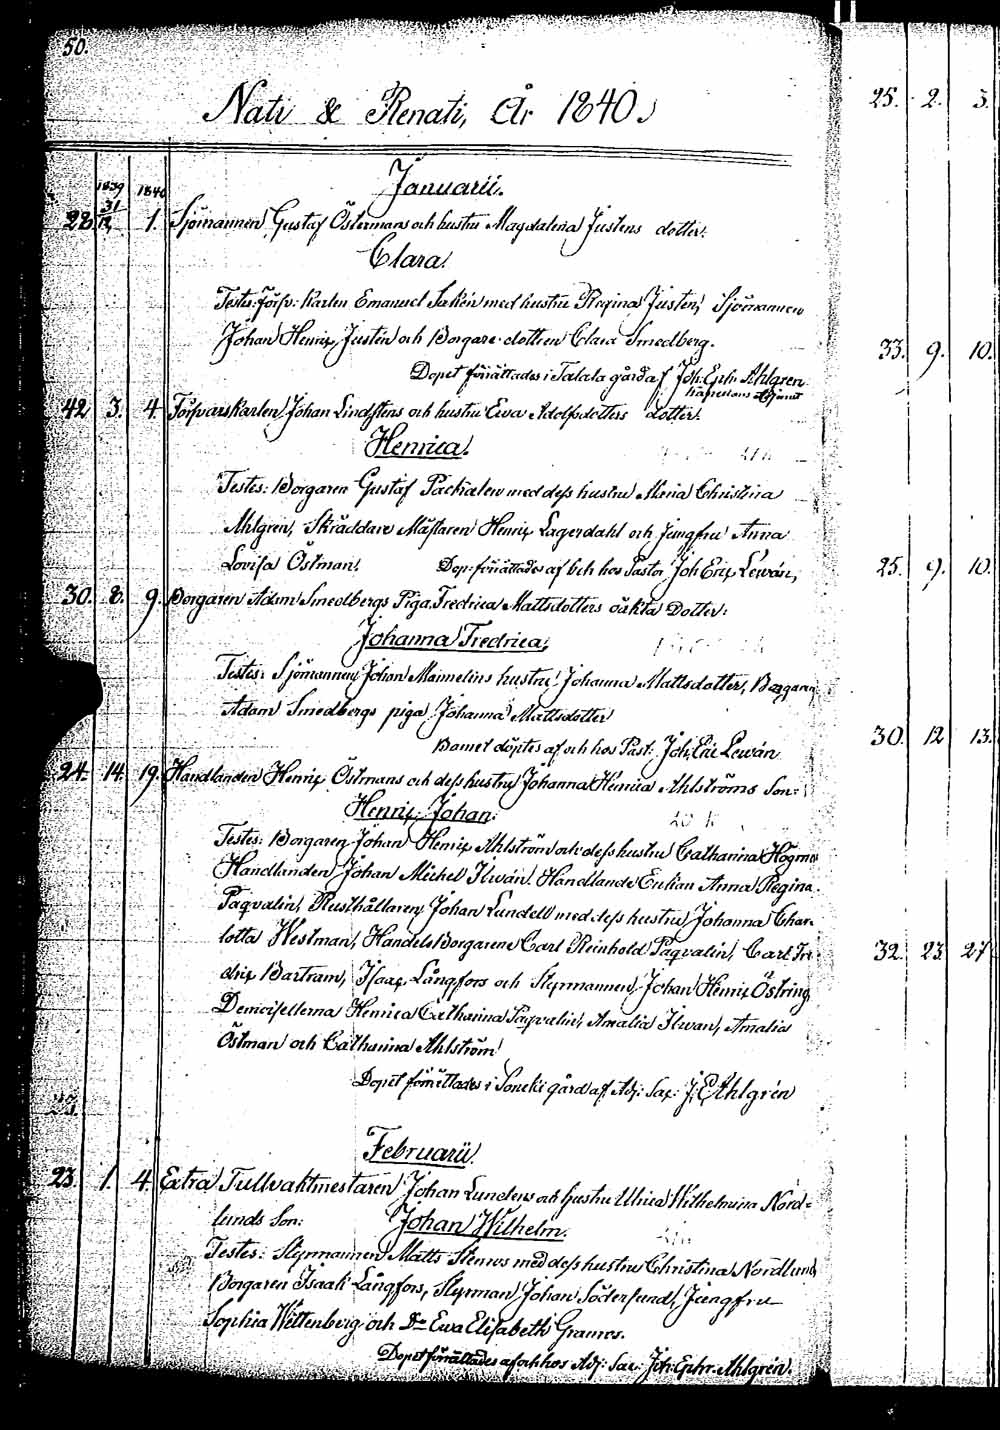 50.
Nati & Renati, År 1840.
Januarii.
1839 1840
28. 31/12 1. Sjömannen Gustaf Östermans och hustru Magdalena Justens dotter:
Clara.
Testes: Förfv: Karlen Emanuel med hustru Regina Justen, Sjömannen
Johan Henrix Justen och Borgare dottren Clara Smedberg.
Dopet förrättades i Talala gård af Joh: Eph: Ahlgren
Adjunct
42. 3. 4. Förfvarskarlen Johan Lindstens och hustru Ewa Adolfsdotters dotter.
Henrica.
Testes: Borgaren Gustaf Päckalen med dess hustru Maria Christina
Ahlgren, Skräddare Mästaren Henrix Lagerdahl och Jungfru Anna
Lovisa Östman. Dop: förrättades af och hos Pastor Joh Erix Lewán,
30. 8. 9. Borgaren Adam Smedbergs Piga Fredrica Mattsdotters oäkta Dotter:
Johanna Fredrica.
Testes: Sjömannen Johan Maimelins hustru Johanna Mattsdotter, Borgaren
Adam Smedbergs piga Johanna Mattsdotter
Barnet döptes af och hos Past: Joh: Eric Lewán
24. 14. 19. Handlanden Henrix Östmans och dess hustru Johanna Henrica Ahlströms Son:
Henrix Johan.
Testes: Borgaren Johan Henrix Ahlström och dess hustru Catharina Högman
Handlanden Johan Michel Ilwán. Handlande Enkan Anna Regina
Paqvalin, Rusthållaren Johan Lundell med dess hustru Johanna Char-
lotta Westman, Handels Borgarene Carl Reinhold Paqvalin, Carl Fre-
drix Bartram, Isaac Långfors och Styrmannen Johan Henrix Östring
Demoisellerna Henrica Catharina Paqvalin, Amalia Ilwan, Amalia
Östman och Catharina Ahlström
Dopet förrättades i gård af Adj: Sac: J: E Ahlgrén
Februarii.
23. 1. 4. Extra Tullvaktmestaren Johan Lundens och hustru Ulrica Wilhelmina Nord-
lunds Son: Johan Wilhelm.
Testes: Styrmannen Matts Stenros med dess hustru Christina Nordlund,
Borgaren Isaak Långfors, Styrman Johan Söderlund, Jungfru
Sophia Wittenberg och D:o Ewa Elisabeth Granros.
Dopet förrättades af och hos Adj: Sac: Joh: Ephr. Ahlgrén.
25. 2. 3.
33. 9. 10.
25. 9. 10.
30. 12 13.
32. 23 27